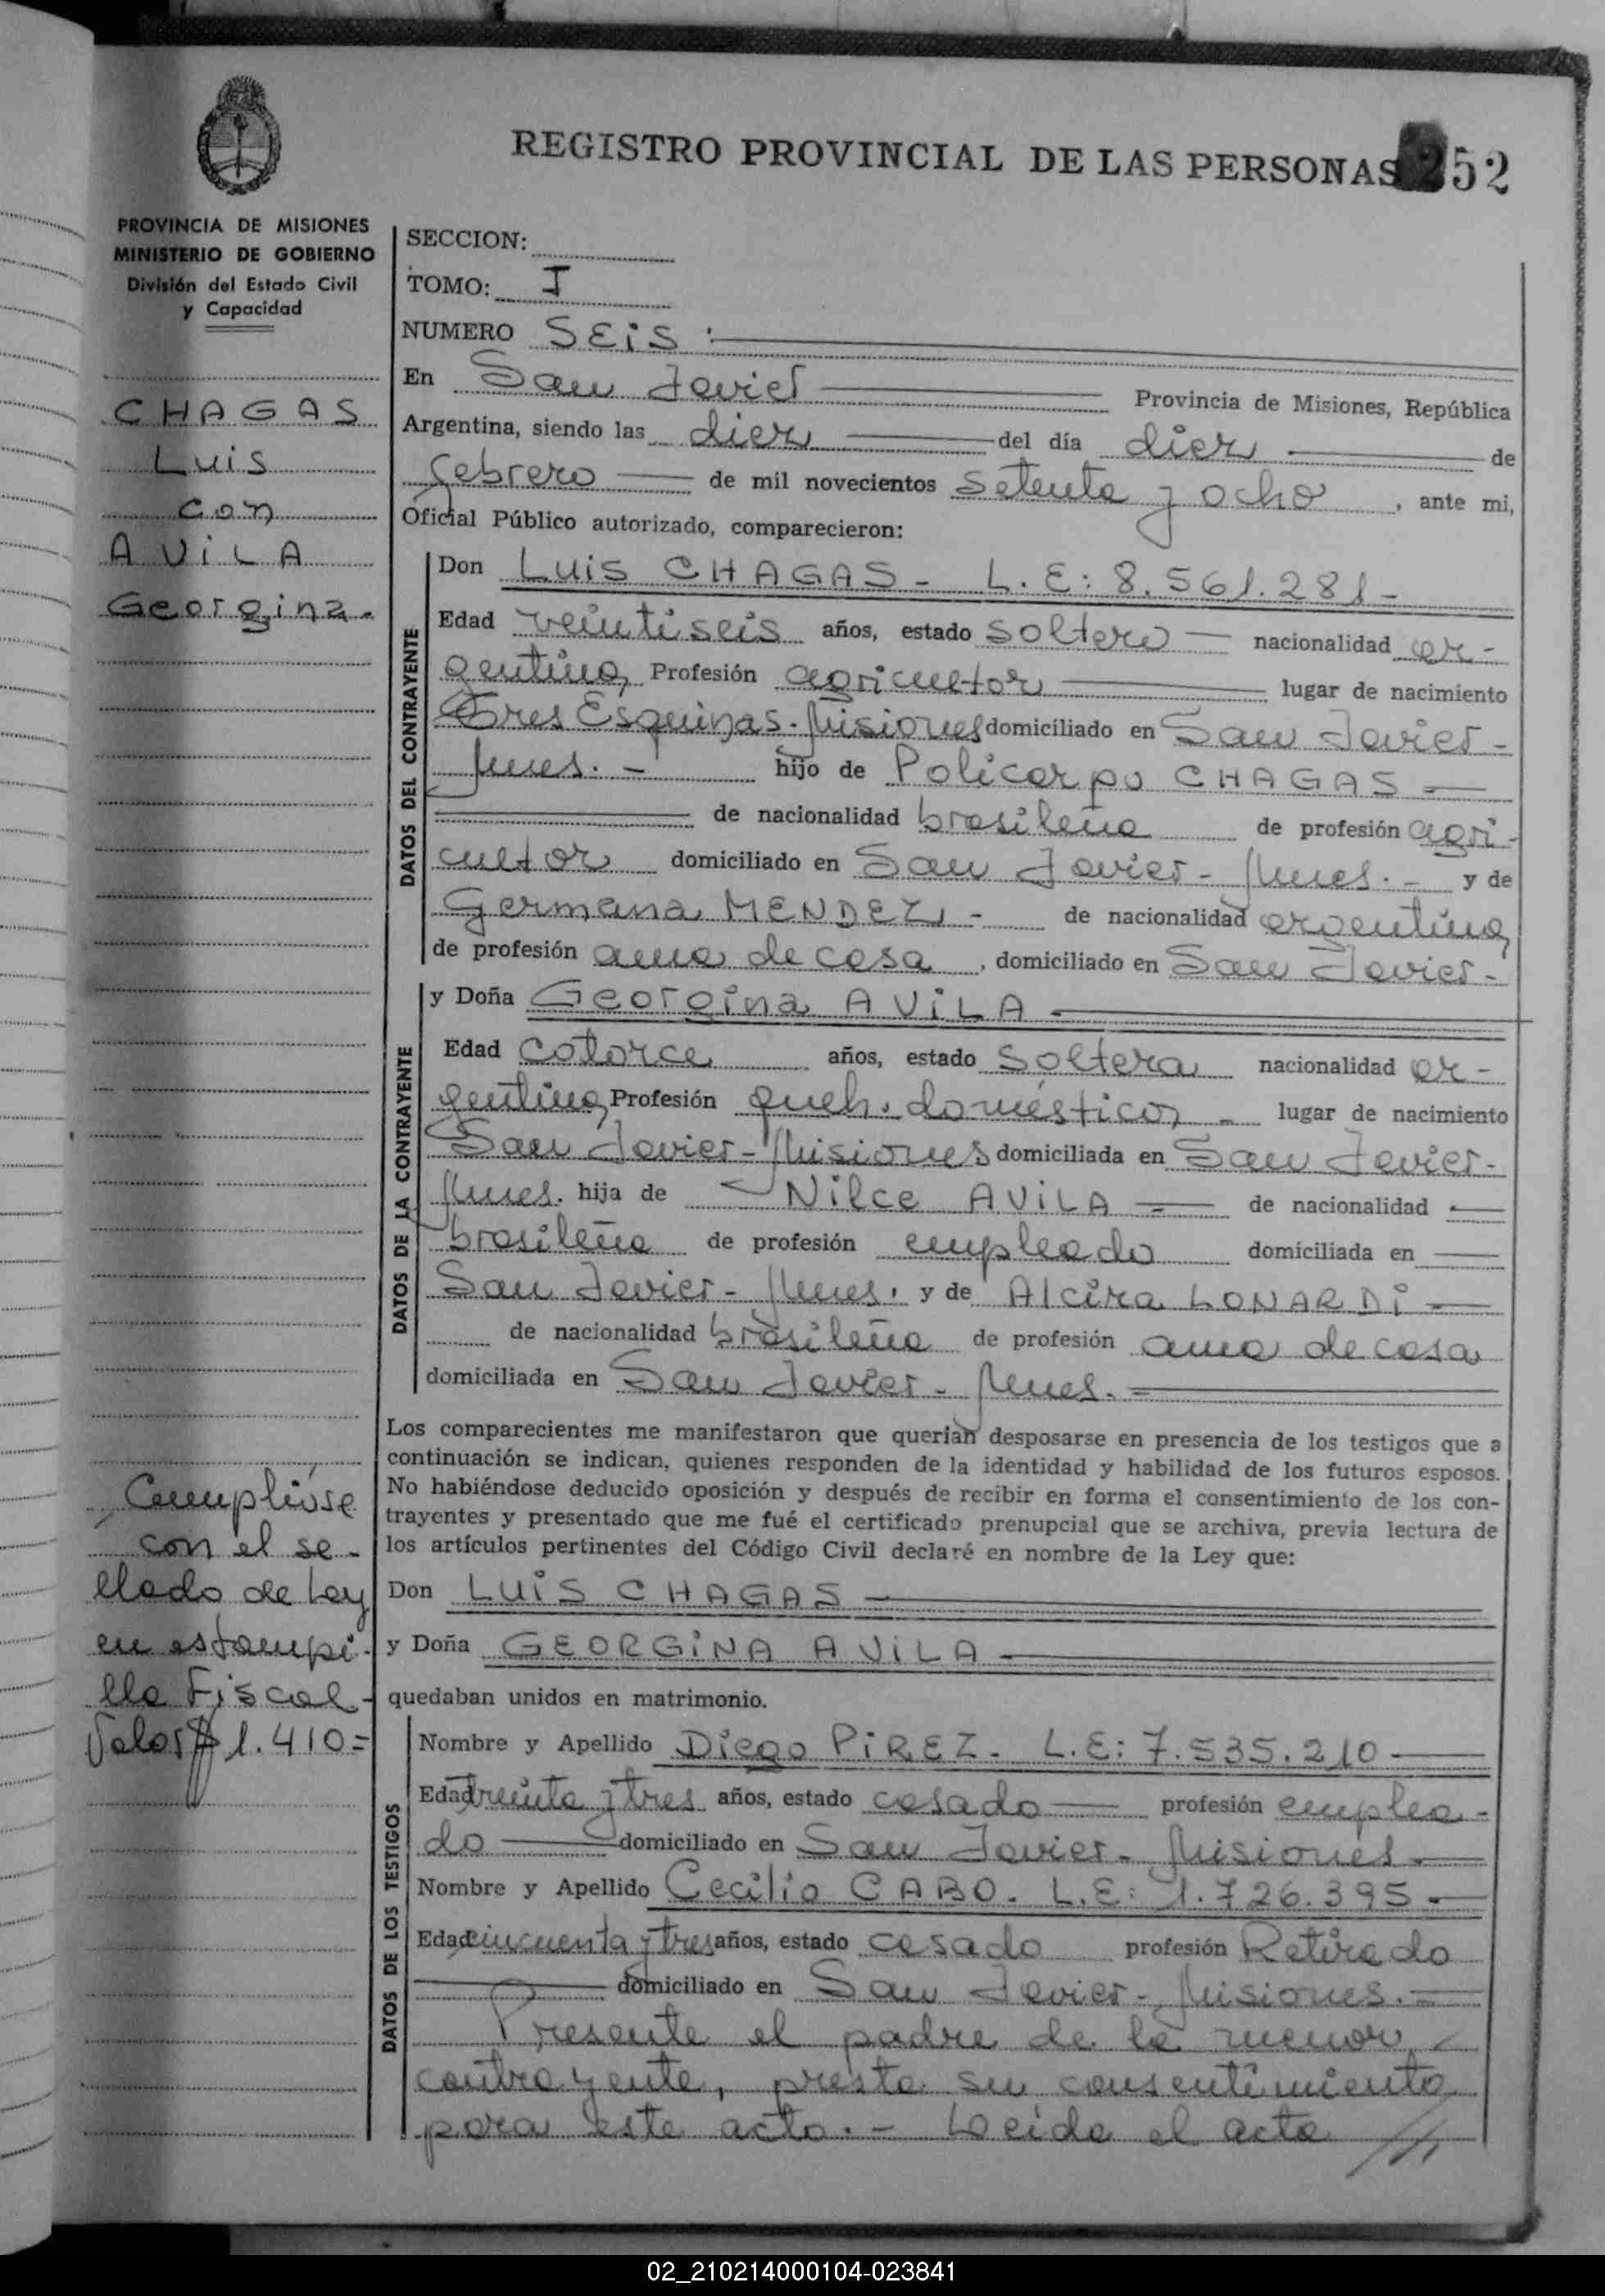 REGISTRO PROVINCIAL DE LAS PERSONAS 252
PROVINCIA DE MISIONES
MINISTERIO DE GOBIERNO
División del Estado Civil
y Capacidad
CHAGAS
Luis
con
AVILA
Georgina.
SECCION:
TOMO: I
NUMERO SEIS :
En San Javier Provincia de Misiones, República
Argentina, siendo las diez del día diez de
febrero de mil novecientos setenta y ocho, ante mi,
Oficial Público autorizado, comparecieron:
DATOS DEL CONTRAYENTE
Don Luis CHAGAS - L.E: 8.561.281-
Edad veintiseis años, estado soltero nacionalidad ar-
gentina, Profesión agricultor lugar de nacimiento
Tres Esquinas. Misiones domiciliado en San Javier-
Mnes. - hijo de Policarpo CHAGAS -
de nacionalidad brasileña de profesión agri-
cultor domiciliado en San Javier - Mnes. - y de
Germana MENDEZ - de nacionalidad argentina,
de profesión ama de casa, domiciliado en San Javier-
DATOS DE LA CONTRAYENTE
y Doña Georgina AVILA -
Edad catorce años, estado soltera nacionalidad ar-
gentina, Profesión queh. domésticos - lugar de nacimiento
San Javier - Misiones domiciliada en San Javier-
Mnes. hija de Nilce AVILA - de nacionalidad
brasileña de profesión empleado domiciliada en
San Javier - Mnes. y de Alcira LONARDI -
de nacionalidad brasileña de profesión ama de casa
domiciliada en San Javier - Mnes. -
Los comparecientes me manifestaron que querían desposarse en presencia de los testigos que a
continuación se indican, quienes responden de la identidad y habilidad de los futuros esposos.
No habiéndose deducido oposición y después de recibir en forma el consentimiento de los con-
trayentes y presentado que me fué el certificado prenupcial que se archiva, previa lectura de
los artículos pertinentes del Código Civil declaré en nombre de la Ley que:
Don LUIS CHAGAS
y Doña GEORGINA AVILA
quedaban unidos en matrimonio.
Cumplióse
con el se-
llado de Ley
en estampi-
lla Fiscal -
Valor $ 1.410=
DATOS DE LOS TESTIGOS
Nombre y Apellido Diego PIREZ - L.E: 7.535.210
Edad treinta y tres años, estado casado profesión emplea-
do domiciliado en San Javier - Misiones
Nombre y Apellido Cecilio CABO - L.E: 1.726.395 -
Edad cincuenta y tres años, estado casado profesión Retirado
domiciliado en San Javier - Misiones. -
Presente el padre de la menor
contrayente, presta su consentimiento
para este acto. - Leida el acta //
02_210214000104-023841